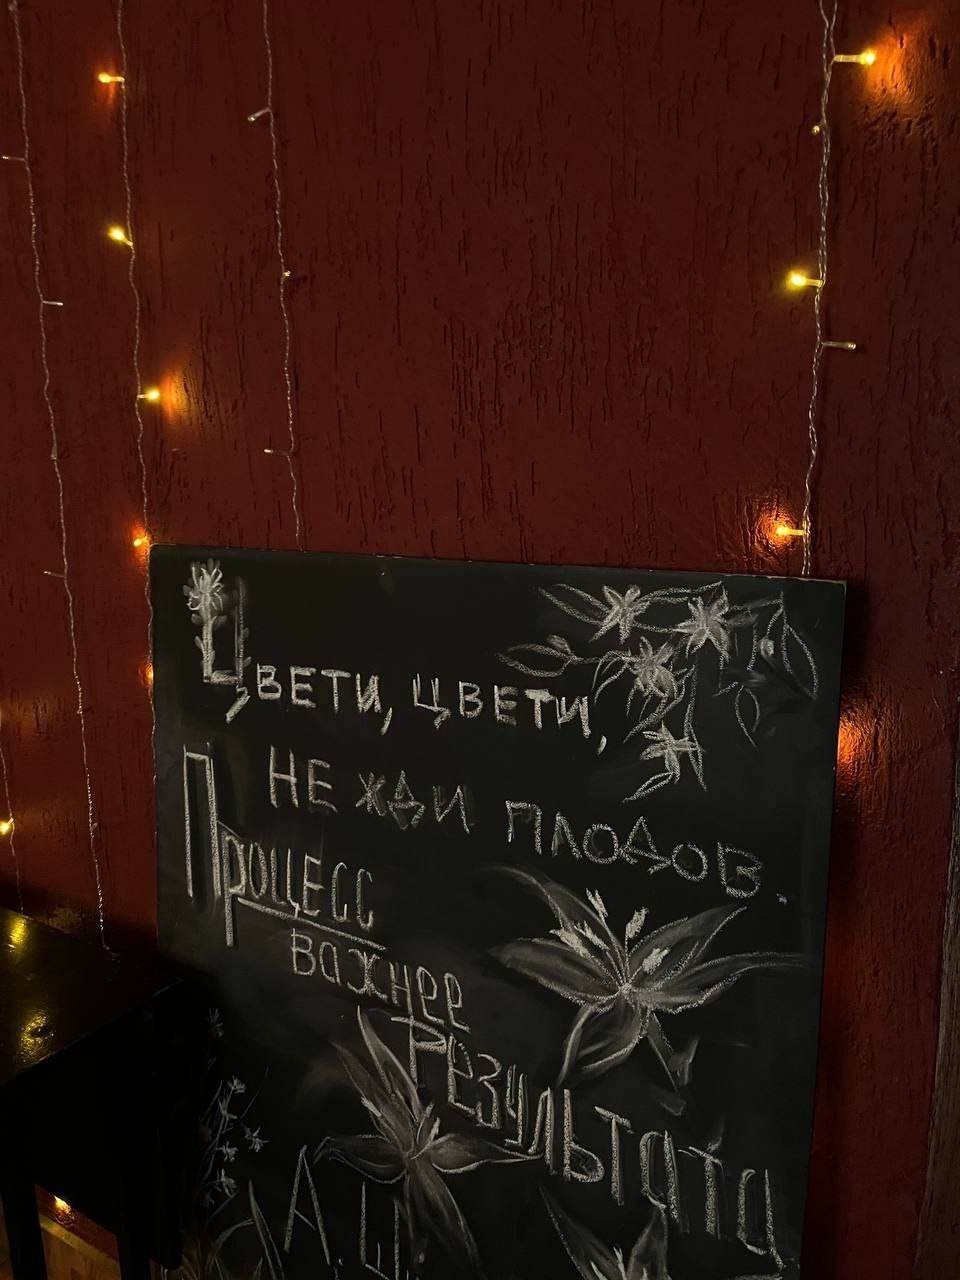 Цвети, цвети,
не жди плодов.
Процесс
важнее
Результата
А. Ц